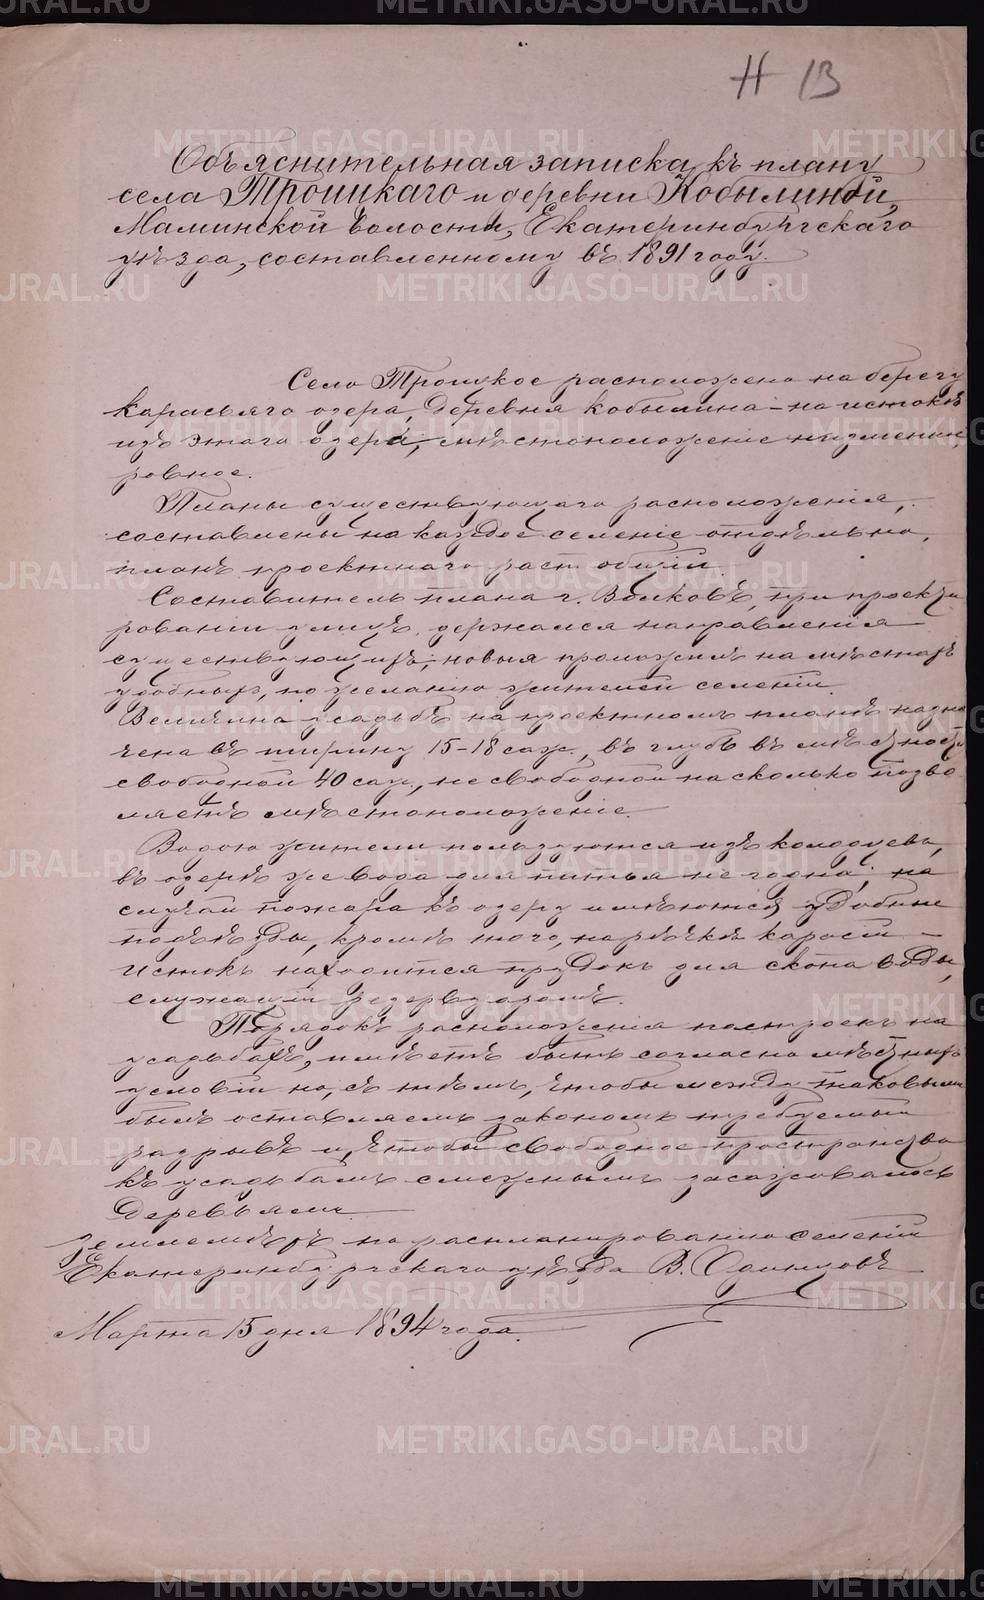 Н 13
Объяснительная записка къ плану
села Троицкаго и деревни Кобылиной,
Маминской волости, Екатеринбургскаго
уѣзда, составленному въ 1891 году.
Село Троицкое расположено на берегу
карасьяго озера, деревня кобылина – на истокѣ
изъ этаго озера, мѣстоположеніе низменно
ровное.
Планы существующаго расположенія,
составлены на каждое селеніе отдѣльно,
планъ проектнаго расп. общій.
Составитель плана г. Волковъ, при проекти
рованіи улицъ держался направленія
существующихъ, новыя проложилъ на мѣстахъ
удобныхъ, по желанію жителей селеній.
Величина усадьбъ на проектномъ планѣ назна
чена въ ширину 15-18 саж., въ глубь въ мѣстности
свободной 40 саж., не свободной на сколько позво
ляетъ мѣстоположеніе.
Водою жители пользуются изъ колодцевъ,
въ озерѣ же вода для питья не годна; на
случай пожара къ озеру имѣются удобные
подъѣзды, кромѣ того, на рѣчкѣ караси –
истокъ находится прудокъ для скопа воды,
служащій резервуаромъ.
Порядокъ расположенія построекъ на
усадьбахъ, имѣетъ быть согласно мѣстныхъ
условій но, съ тѣмъ, чтобы между таковыми
былъ оставляемъ закономъ требуемый
разрывъ и, чтобы свободное пространство
къ усадьбамъ смежнымъ засаживалось
деревьями.
Землемѣръ по распланированію селеній
Екатеринбургскаго уѣзда В. Одинцовъ
Марта 15 дня 1894 года.
METRIKI.GASO-URAL.RU